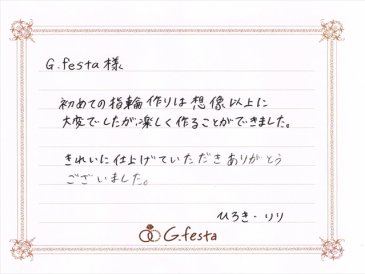 G.festa様
初めての指輪作りは想像以上に
大変でしたが、楽しく作ることができました。
きれいに仕上げていただきありがとう
ございました。
ひろき・りり
G.festa